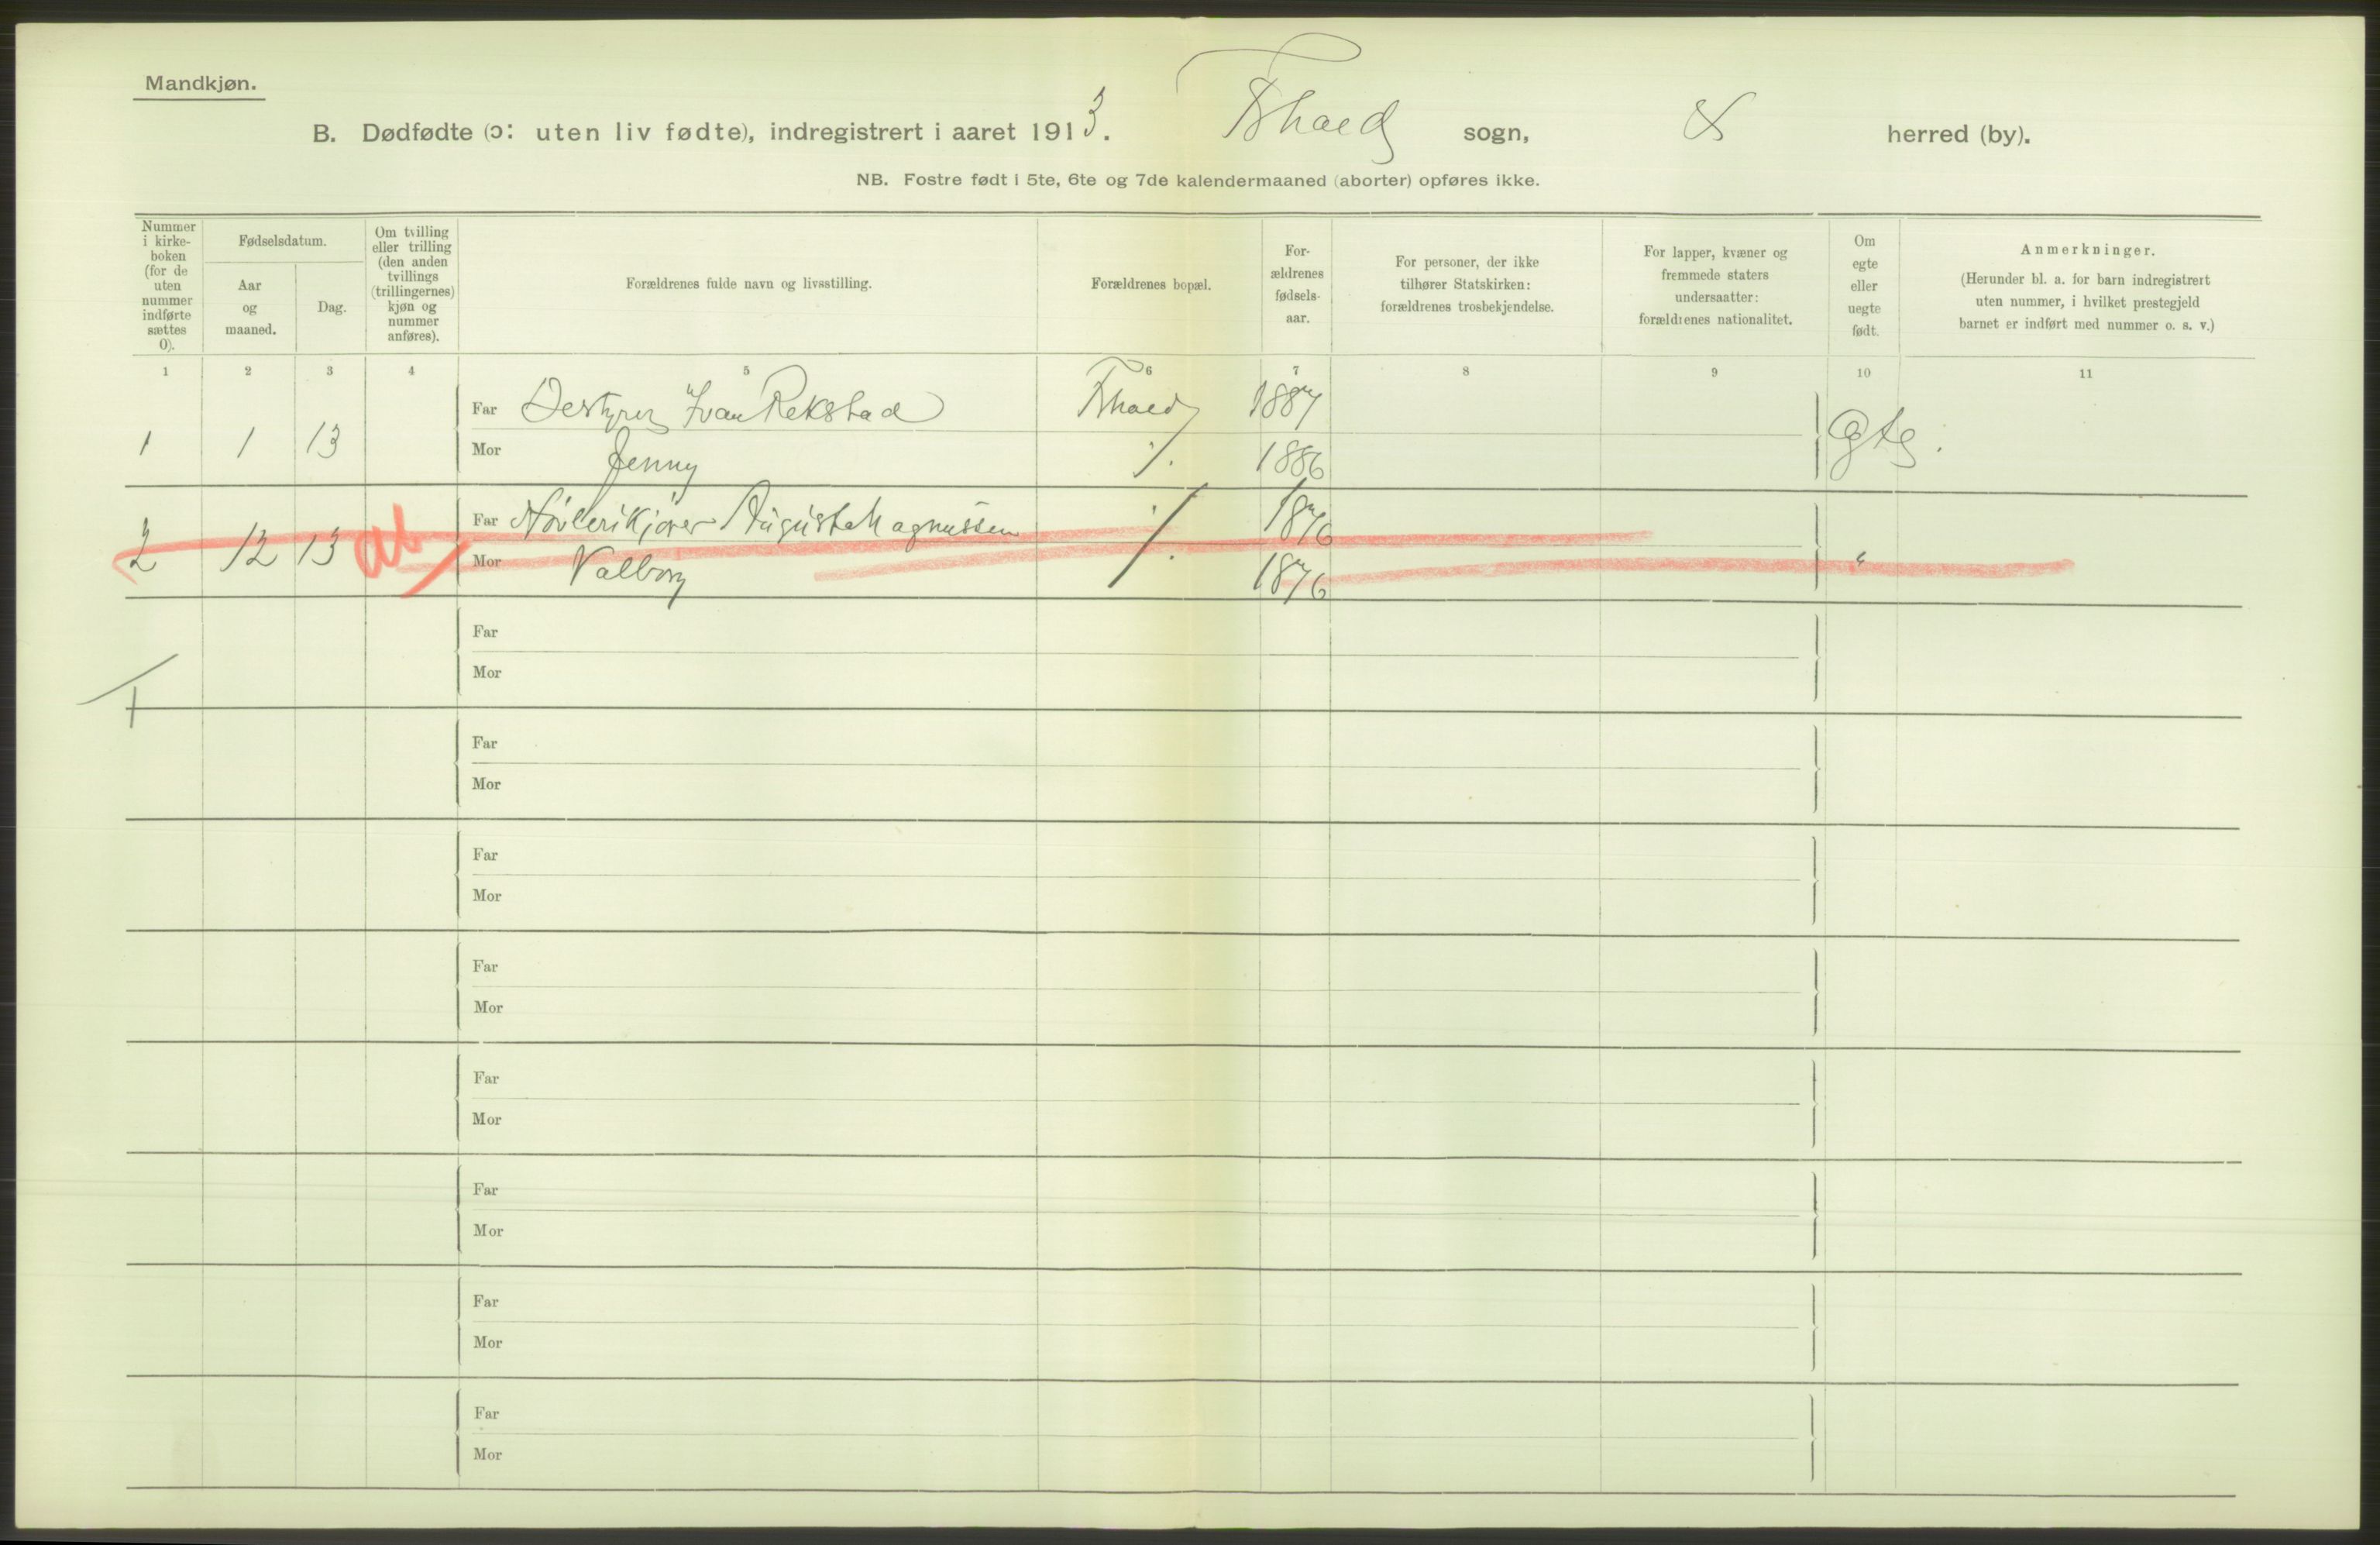 Mandkjøn.
B. Dødfødte (ɔ: uten liv fødte), indregistrert i aaret 1913. Fhald sogn, & herred (by).
NB. Fostre født i 5te, 6te og 7de kalendermaaned (aborter) opføres ikke.
Nummer i kirke-boken (for de uten nummer indførte sættes 0).
Fødselsdatum.
Aar og maaned.
Dag.
Om tvilling eller trilling (den anden tvillings (trillingernes) kjøn og nummer anføres).
Forældrenes fulde navn og livsstilling.
Forældrenes bopæl.
For-ældrenes fødsels-aar.
For personer, der ikke tilhører Statskirken: forældrenes trosbekjendelse.
For lapper, kvæner og fremmede staters undersaatter: forældrenes nationalitet.
Om egte eller uegte født.
Anmerkninger.
(Herunder bl. a. for barn indregistrert uten nummer, i hvilket prestegjeld barnet er indført med nummer o. s. v.)
1 2 3 4 5 6 7 8 9 10 11
Far Bestyrer Ivan Rekstad Fhald 1887
1 1 13 Mor Jenny ·/. 1886 Egte.
Far August Magnussen ·/. 1876
2 12 13 ab Mor Valborg 1876 "
Far
Mor
Far
Mor
Far
Mor
Far
Mor
Far
Mor
Far
Mor
Far
Mor
Far
Mor